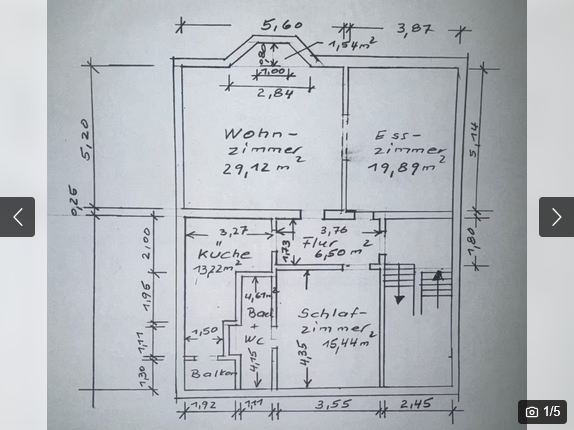 5,60
3,87
1,54m²
1,00
2,84
5,20
Wohn-
zimmer
29,12 m²
Ess-
zimmer
19,89m²
5,14
0,25
3,27
Küche
13,22m²
1,73
3,76
Flur
6,50 m²
1,80
2,00
1,95
4,61m²
Bad
+
WC
4,15
Schlaf-
zimmer
15,44m²
4,35
1,50
1,11
Balkon
1,30
1,92
1,11
3,55
2,45
1/5